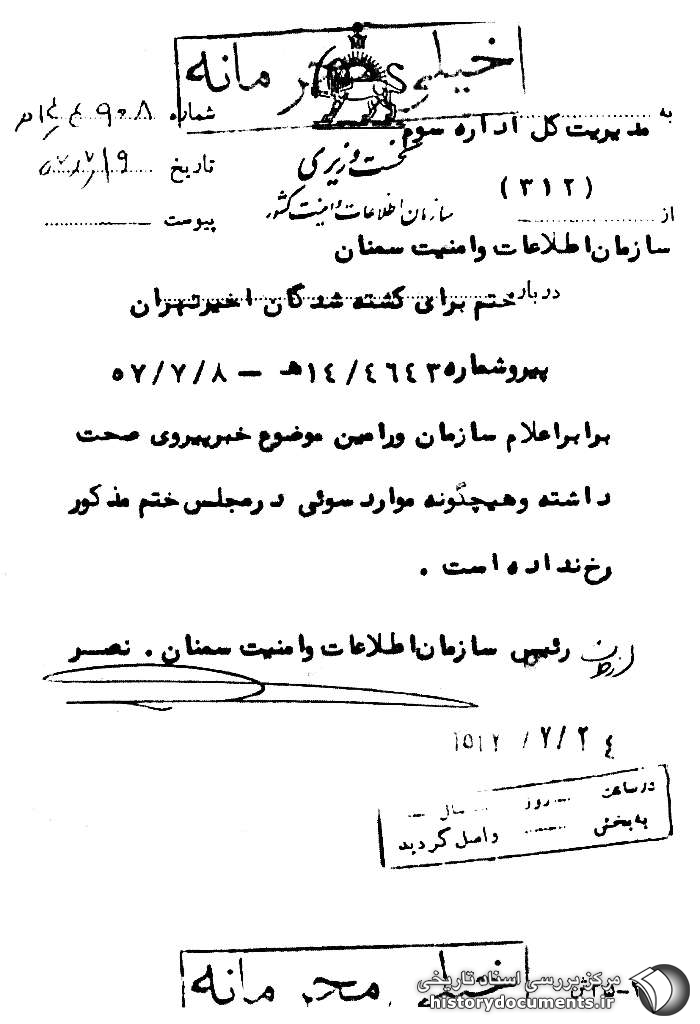 خیلی محرمانه
به مدیریت کل اداره سوم
(۳۱۲)
نخست وزیری
سازمان اطلاعات و امنیت کشور
شماره
تاریخ
پیوست
از
سازمان اطلاعات و امنیت سمنان
درباره ختم برای کشته شدگان اخیر تهران
پیرو شماره ۱۴/۴۶۴۳ هـ – ۵۷/۷/۸
برابر اعلام سازمان ورامین موضوع خبر پیروی صحت
داشته و هیچگونه موارد سوئی در مجلس ختم مذکور
رخ نداده است .
رئیس سازمان اطلاعات و امنیت سمنان . نصر
در ساعت روز سال
به بخش واصل گردید
خیلی محرمانه
مرکز بررسی اسناد تاریخی
historydocuments.ir